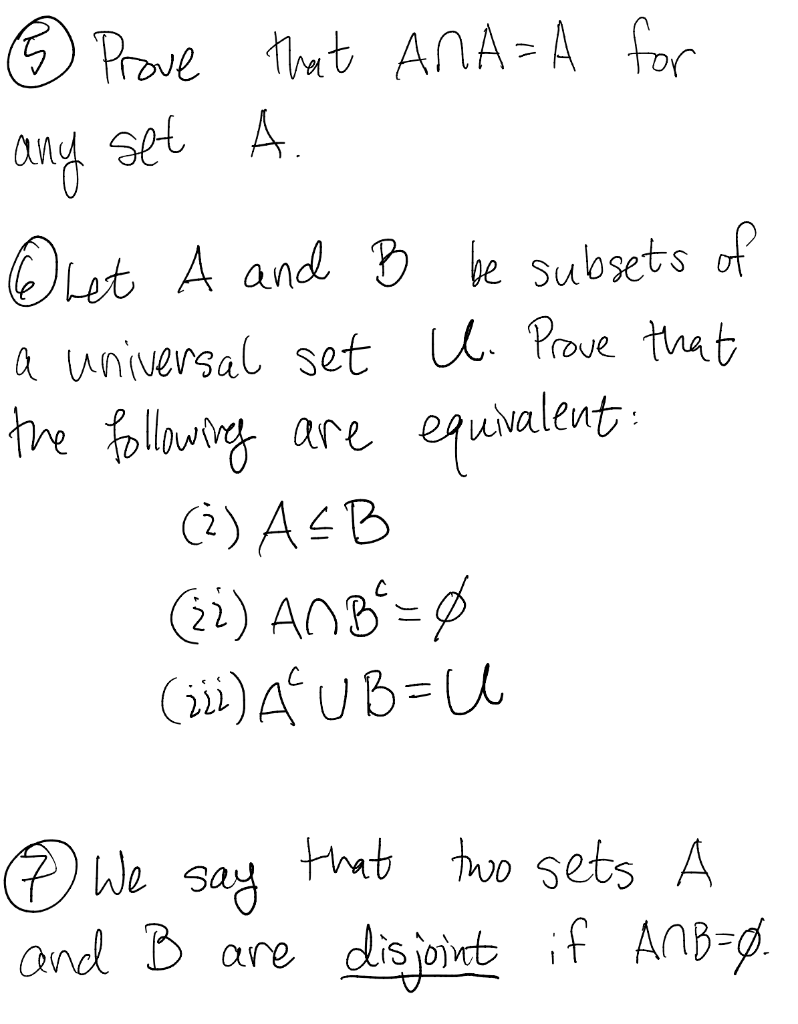 ⑤ Prove that A∩A=A for
any set A.
⑥ Let A and B be subsets of
a universal set U. Prove that
the following are equivalent:
(i) A⊆B
(ii) A∩Bᶜ=∅
(iii) Aᶜ∪B=U
⑦ We say that two sets A
and B are disjoint if A∩B=∅.